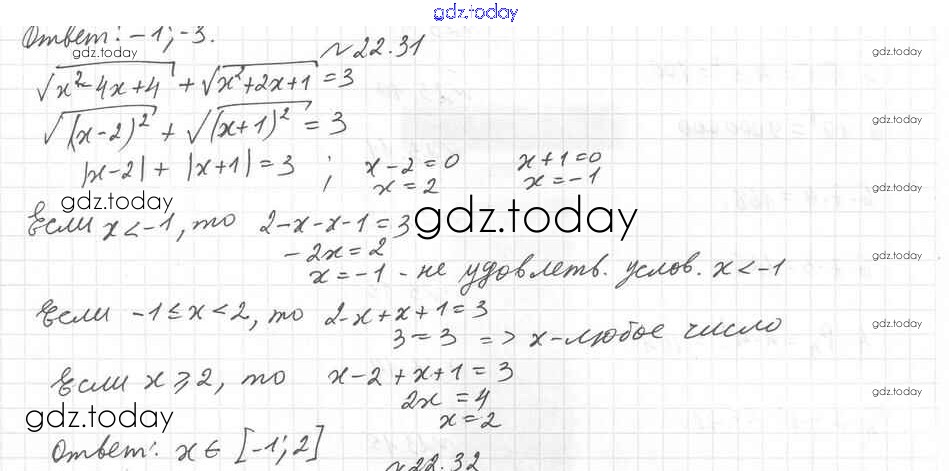 gdz.today
Ответ: -1; -3.
№22.31
gdz.today gdz.today
√(x²-4x+4) + √(x²+2x+1) = 3
√((x-2)²) + √((x+1)²) = 3
gdz.today
|x-2| + |x+1| = 3 ; x-2=0 x+1=0
x=2 x=-1
gdz.today gdz.today
Если x<-1, то 2-x-x-1=3
gdz.today
-2x=2
gdz.today
x=-1 - не удовлетв. услов. x<-1
Если -1≤x<2, то 2-x+x+1=3
gdz.today
3=3 => x-любое число
Если x⩾2, то x-2+x+1=3
gdz.today
2x=4
gdz.today
x=2
Ответ: x∈[-1;2]
№22.32